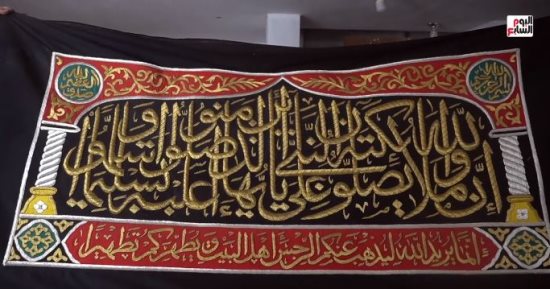 اليوم السابع
إن الله وملائكته يصلون على النبي يا أيها الذين آمنوا صلوا عليه وسلموا تسليما
إنما يريد الله ليذهب عنكم الرجس أهل البيت ويطهركم تطهيرا